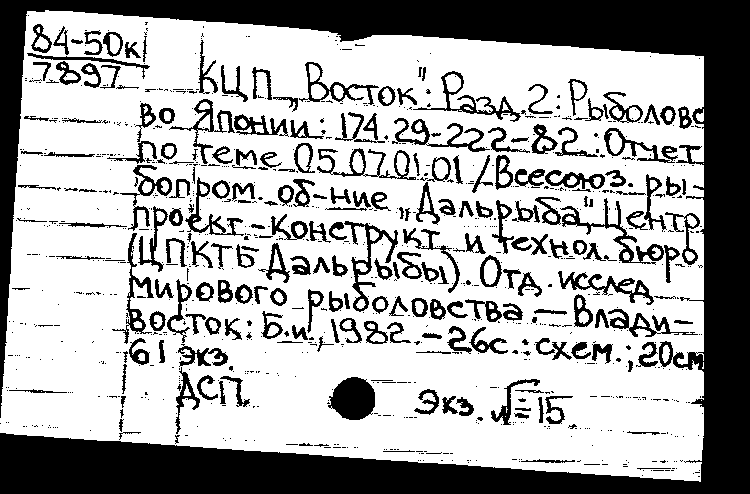 84-50к
7897
КЦП „Восток": Разд. 2: Рыболовс
во Японии: 174.29-222-82.: Отчет
по теме 05.07.01.01 / Всесоюз. ры-
бопром. об-ние „Дальрыба", Центр.
проект.-конструкт. и технол. бюро
(ЦПКТБ Дальрыбы). Отд. исслед.
мирового рыболовства. — Влади-
восток: Б.и., 1982. - 26с.: схем.; 20см
61 экз.
ДСП. Экз. №=15.